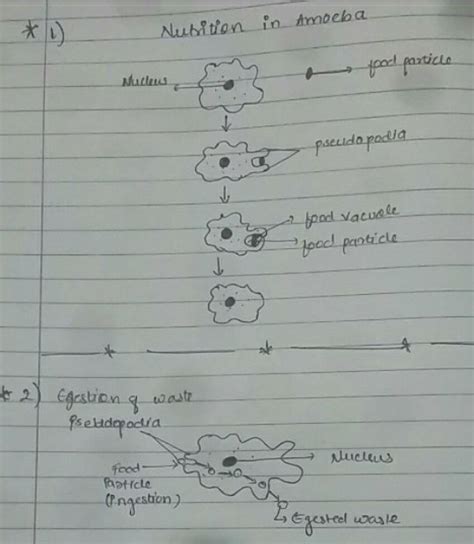 * 1) Nutrition in Amoeba
Nucleus
food particle
pseudopodia
food vacuole
food particle
* 2) Egestion of waste
Pseudopodia
food
Particle
(Ingestion)
Nucleus
Egested waste